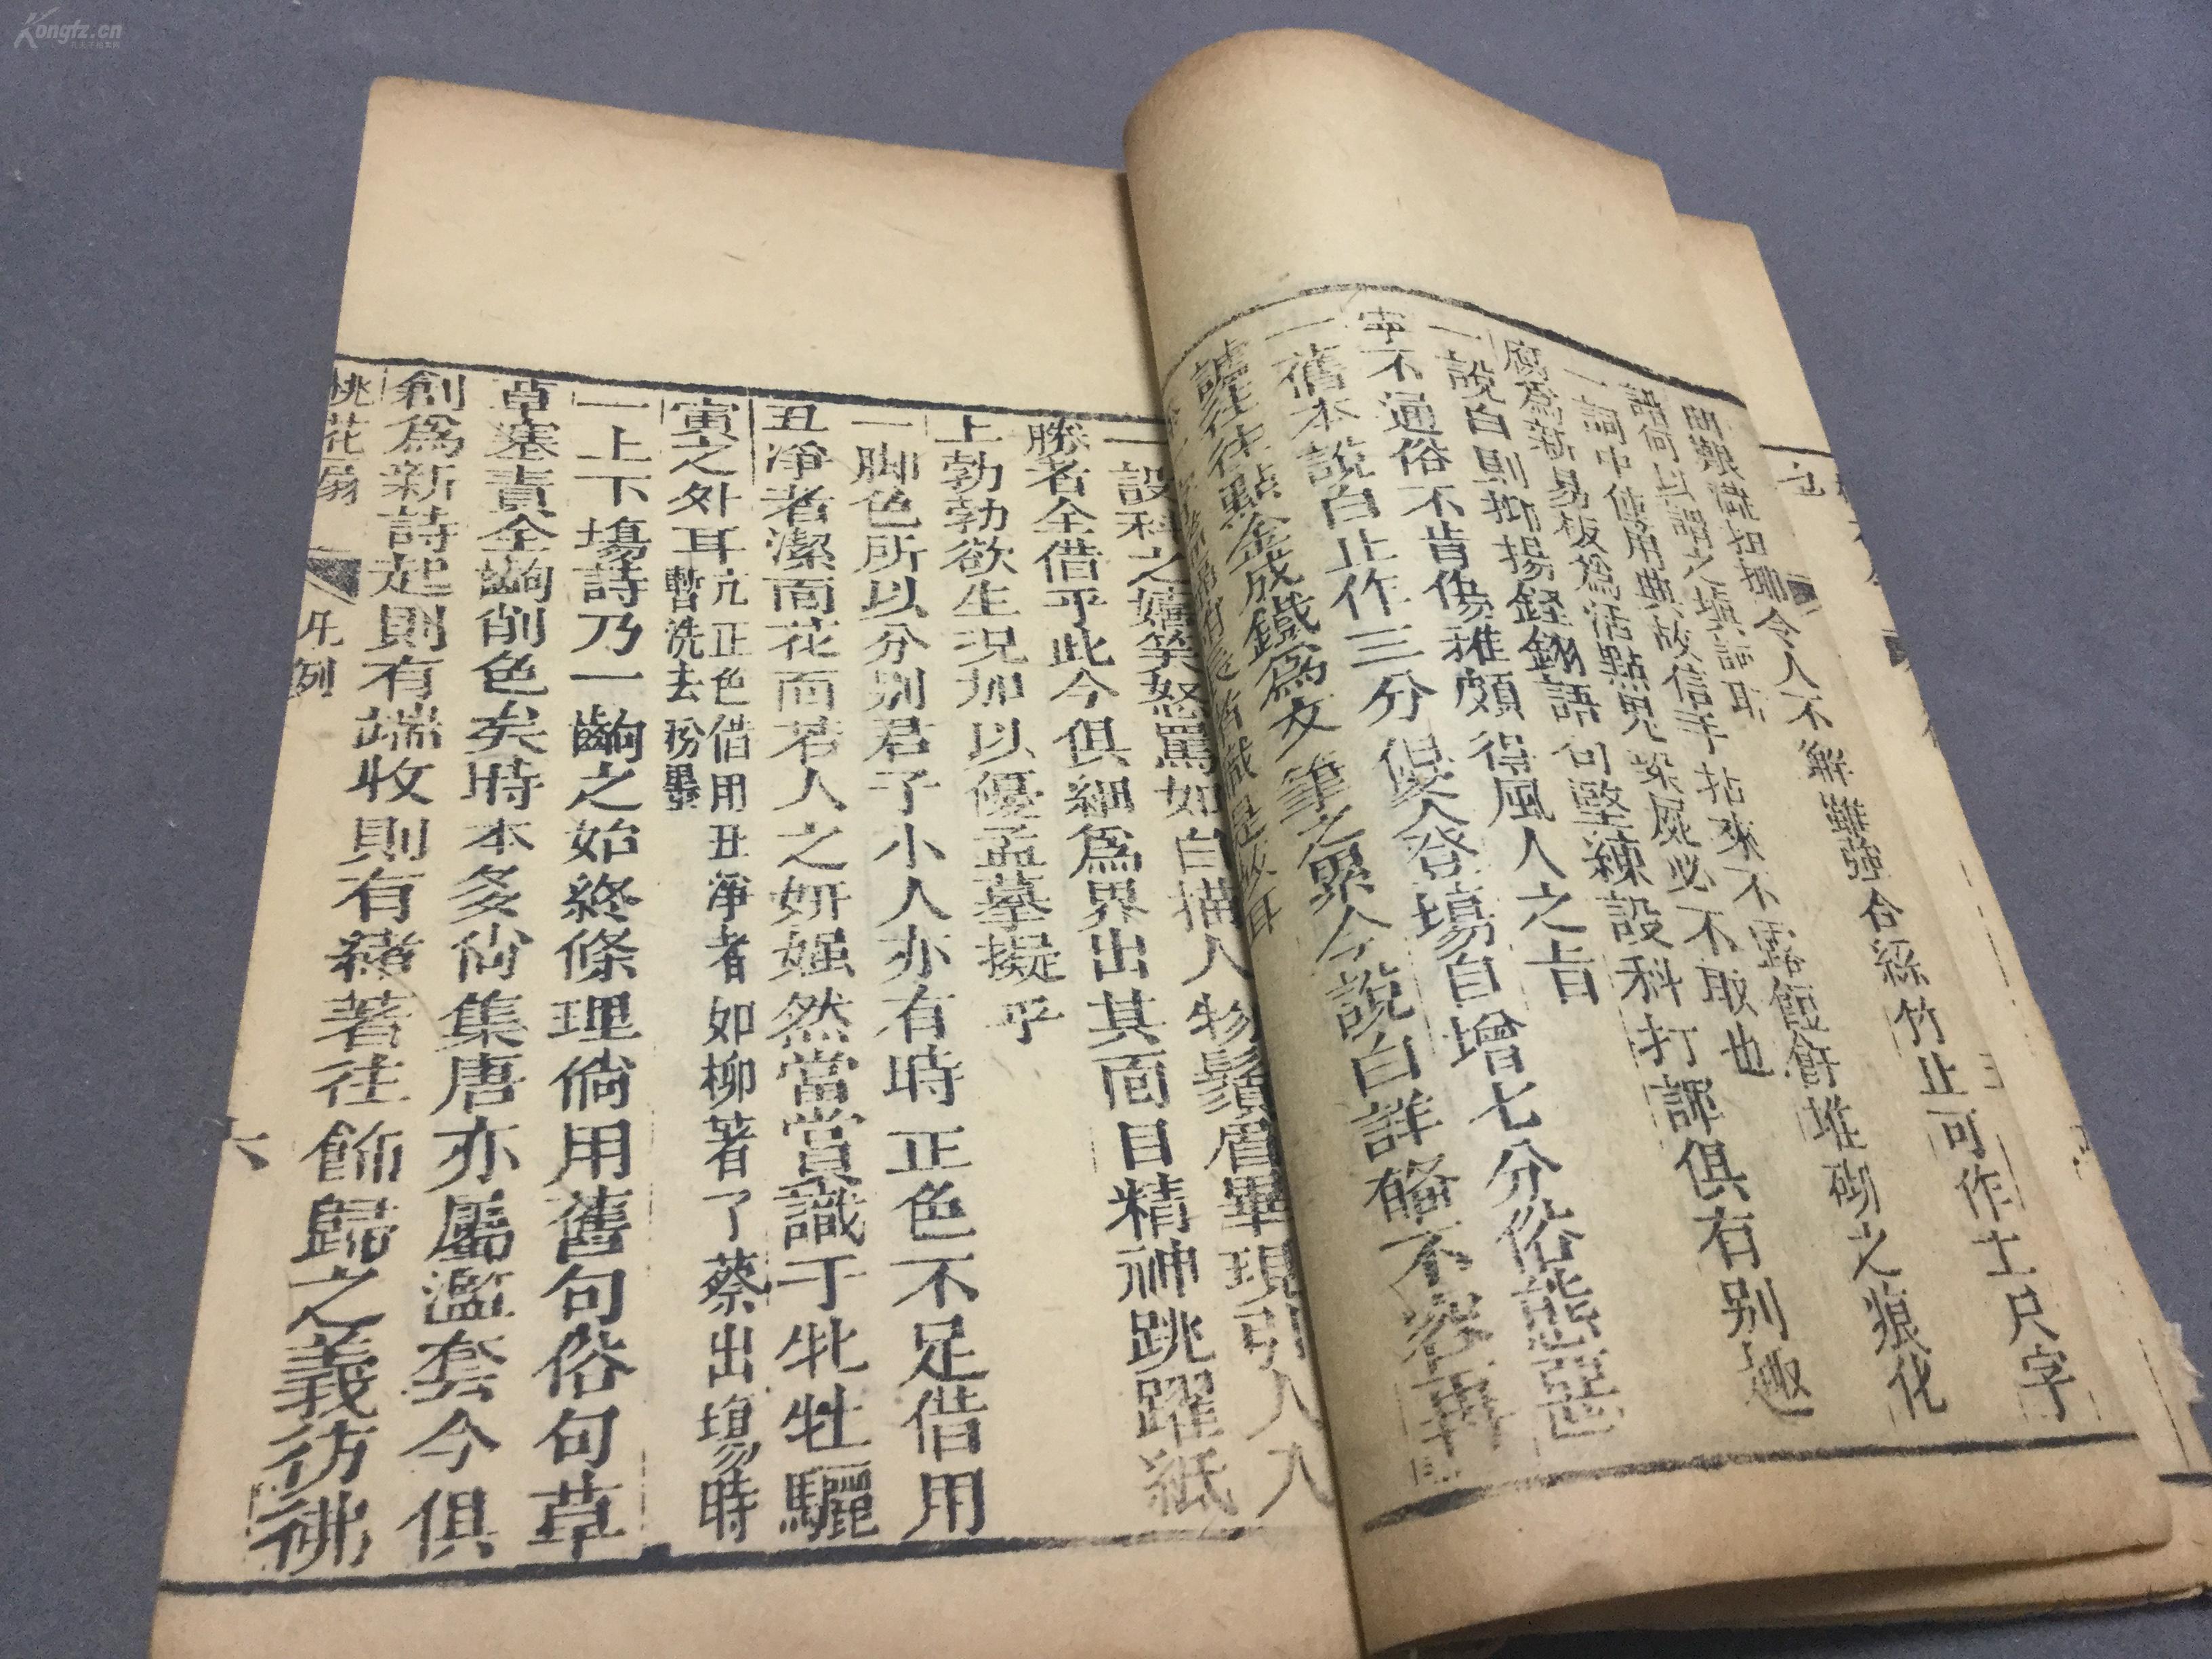 令人不解雖強合絲竹止可作工尺字
不露餖飣堆砌之痕化
腐爲新易板爲活點鬼垜屍必不取也
一說白則抑揚鏗鏘語句堅練設科打諢俱有別趣
寧不通俗不肯傷雅頗得風人之旨
一舊本說白止作三分優人登場自增七分俗態惡
謔往往點金成鐵爲文筆之累今說白詳備不容再
一設科之嬉笑怒罵如白描人物鬚眉畢現引人入
勝者全借乎此今俱細爲界出其面目精神跳躍紙
上勃勃欲生況加以優孟摹擬乎
一脚色所以分別君子小人亦有時正色不足借用
丑淨者潔面花面若人之妍媸然當賞識于牝牡驪
黃之外耳
亢正色借用丑淨者如柳蘇丁蔡出塲時
暫洗去粉墨
一上下塲詩乃一齣之始終條理倘用舊句俗句草
草塞責全齣削色矣時本多尙集唐亦屬濫套今俱
創爲新詩起則有端收則有緒著往飾歸之義彷彿
桃花扇
凡例
六
Kongfz.cn